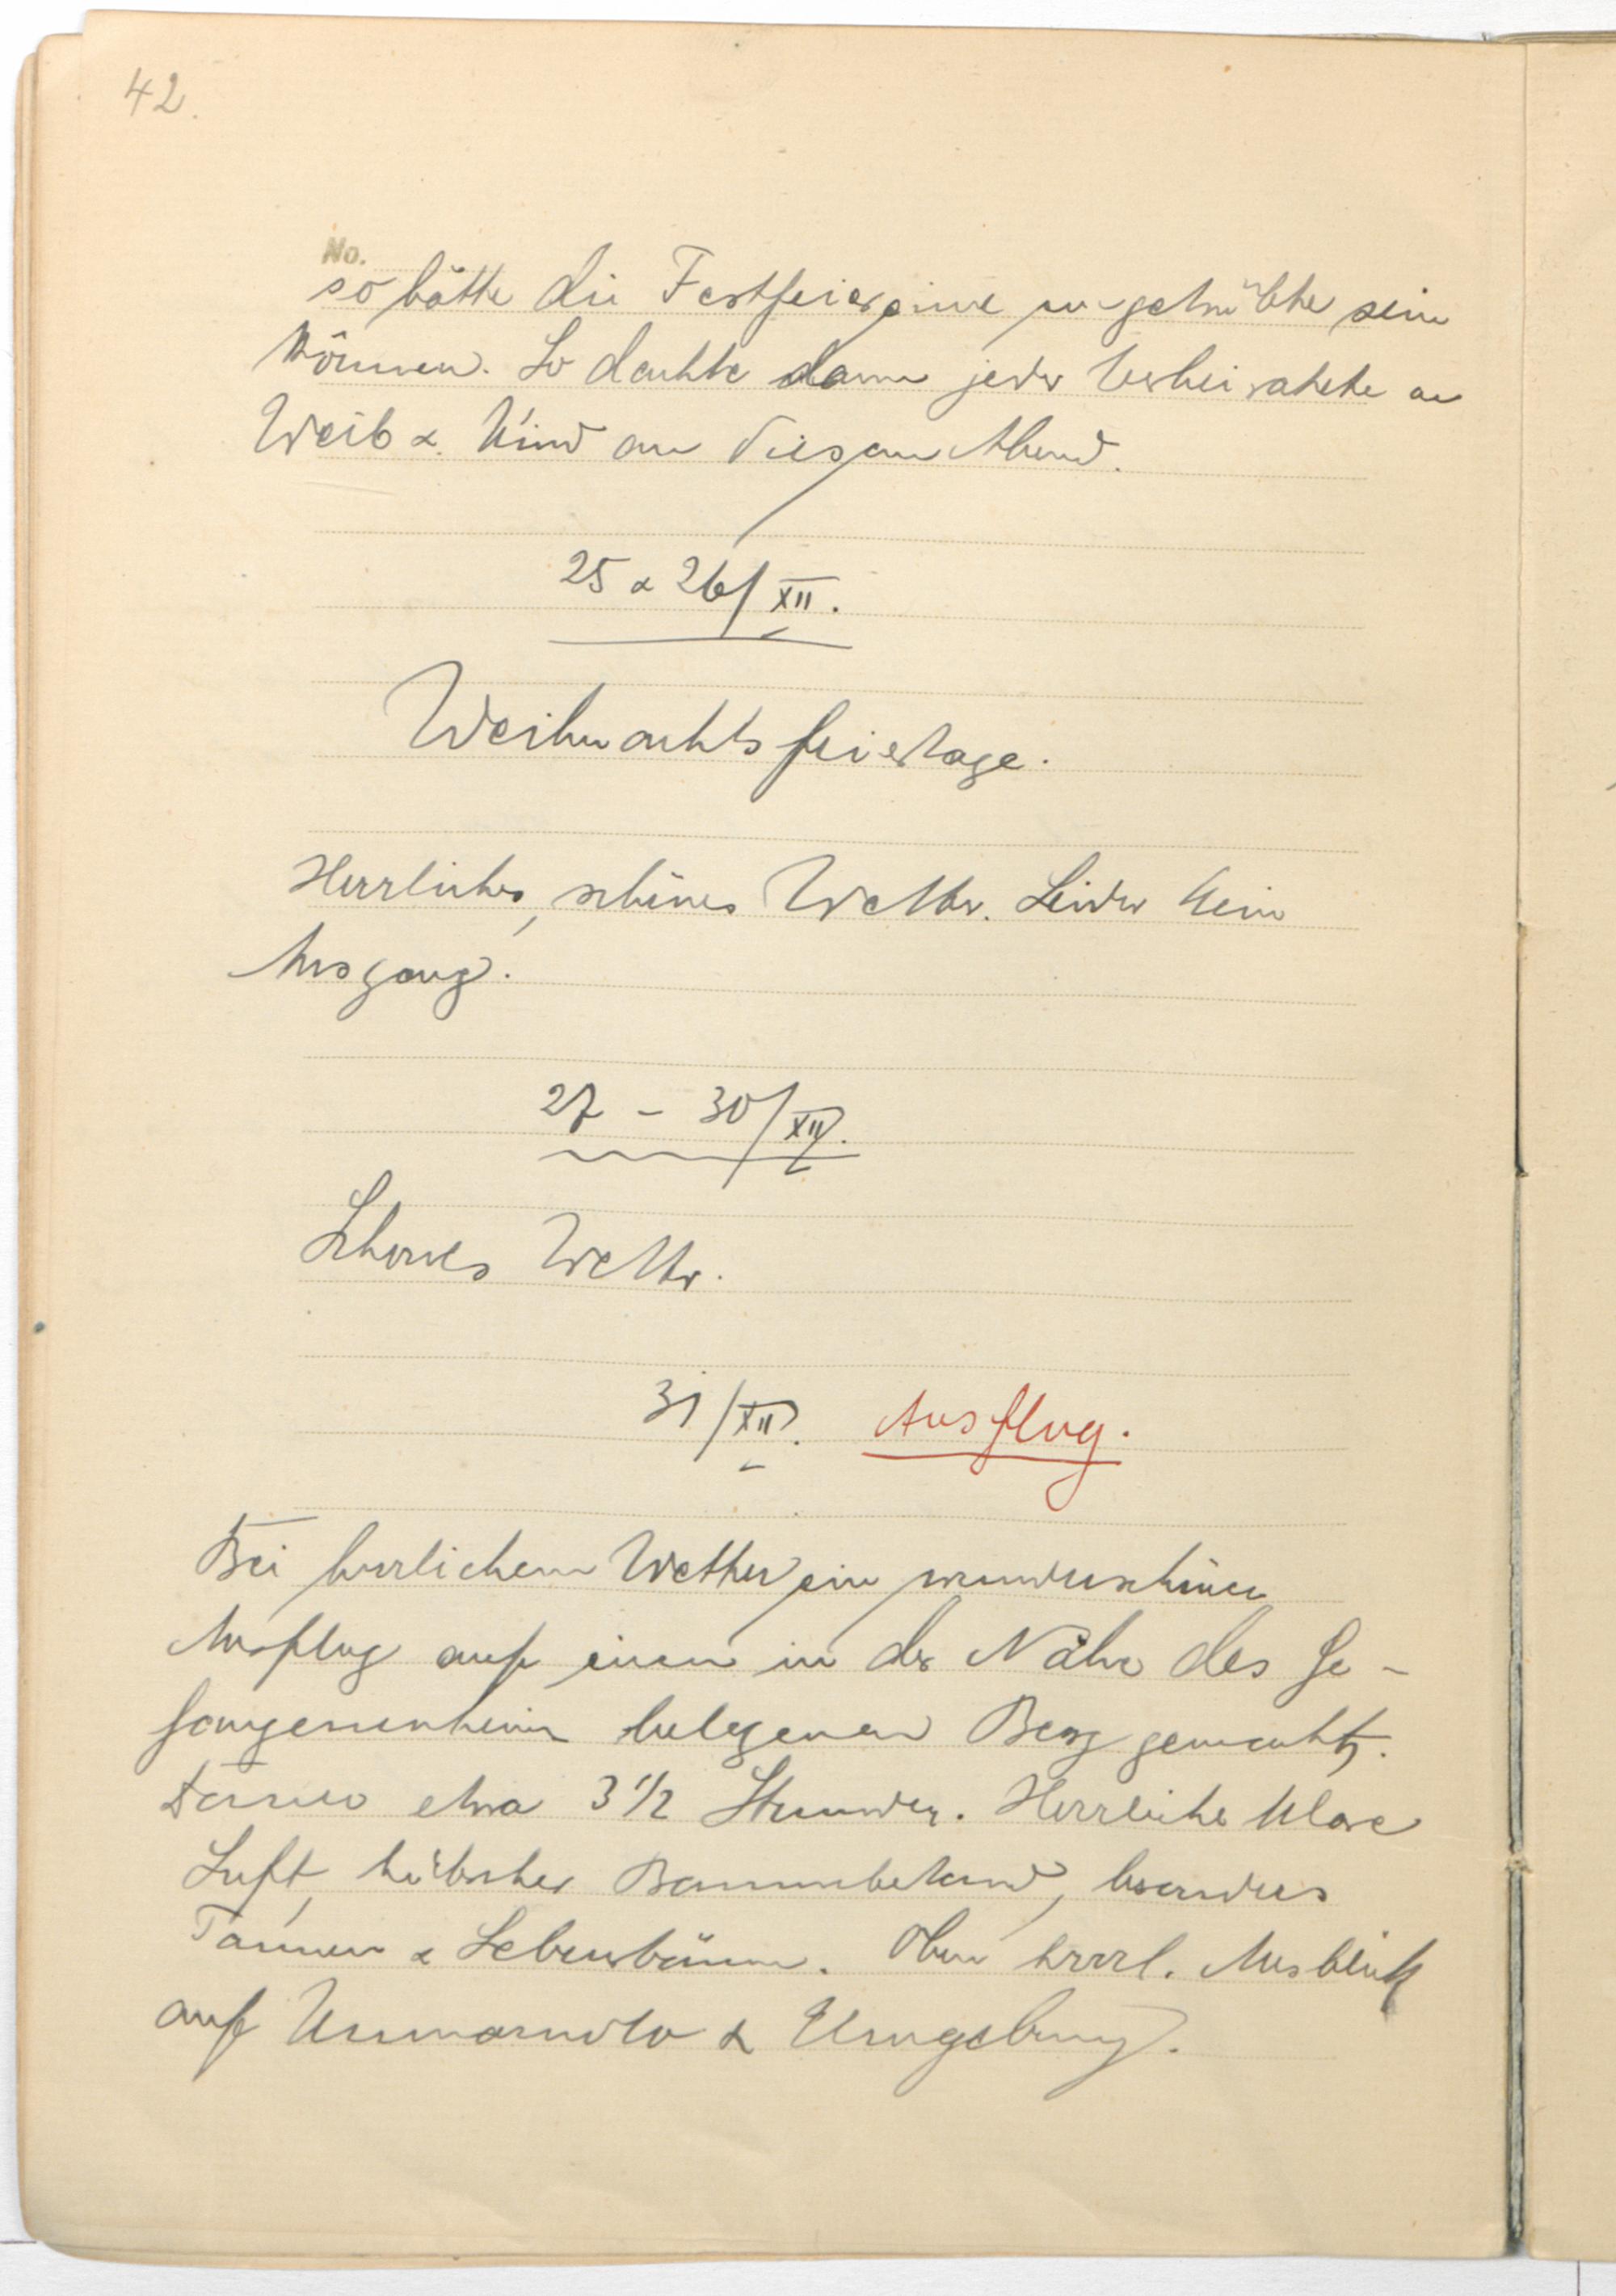 42.
No.
so hätte die Festfeier eine ungetrübte sein
können. So dachte dann jeder Verheiratete an
Weib & Kind an diesem Abend.
25 & 26/XII.
Weihnachtsfeiertage.
Herrliches, schönes Wetter. Leider kein
Ausgang.
27 – 30/XII.
Schönes Wetter.
31/XII. Ausflug.
Bei herrlichem Wetter ein wunderschöner
Ausflug auf einen in der Nähe des Ge-
fangenenheim belegenen Berg gemacht.
Dauer etwa 3 1/2 Stunden. Herrliche klare
Luft, hübscher Baumbestand, besonders
Tannen & Lebensbäume. Oben herrl. Ausblick
auf Kumamoto & Umgebung.